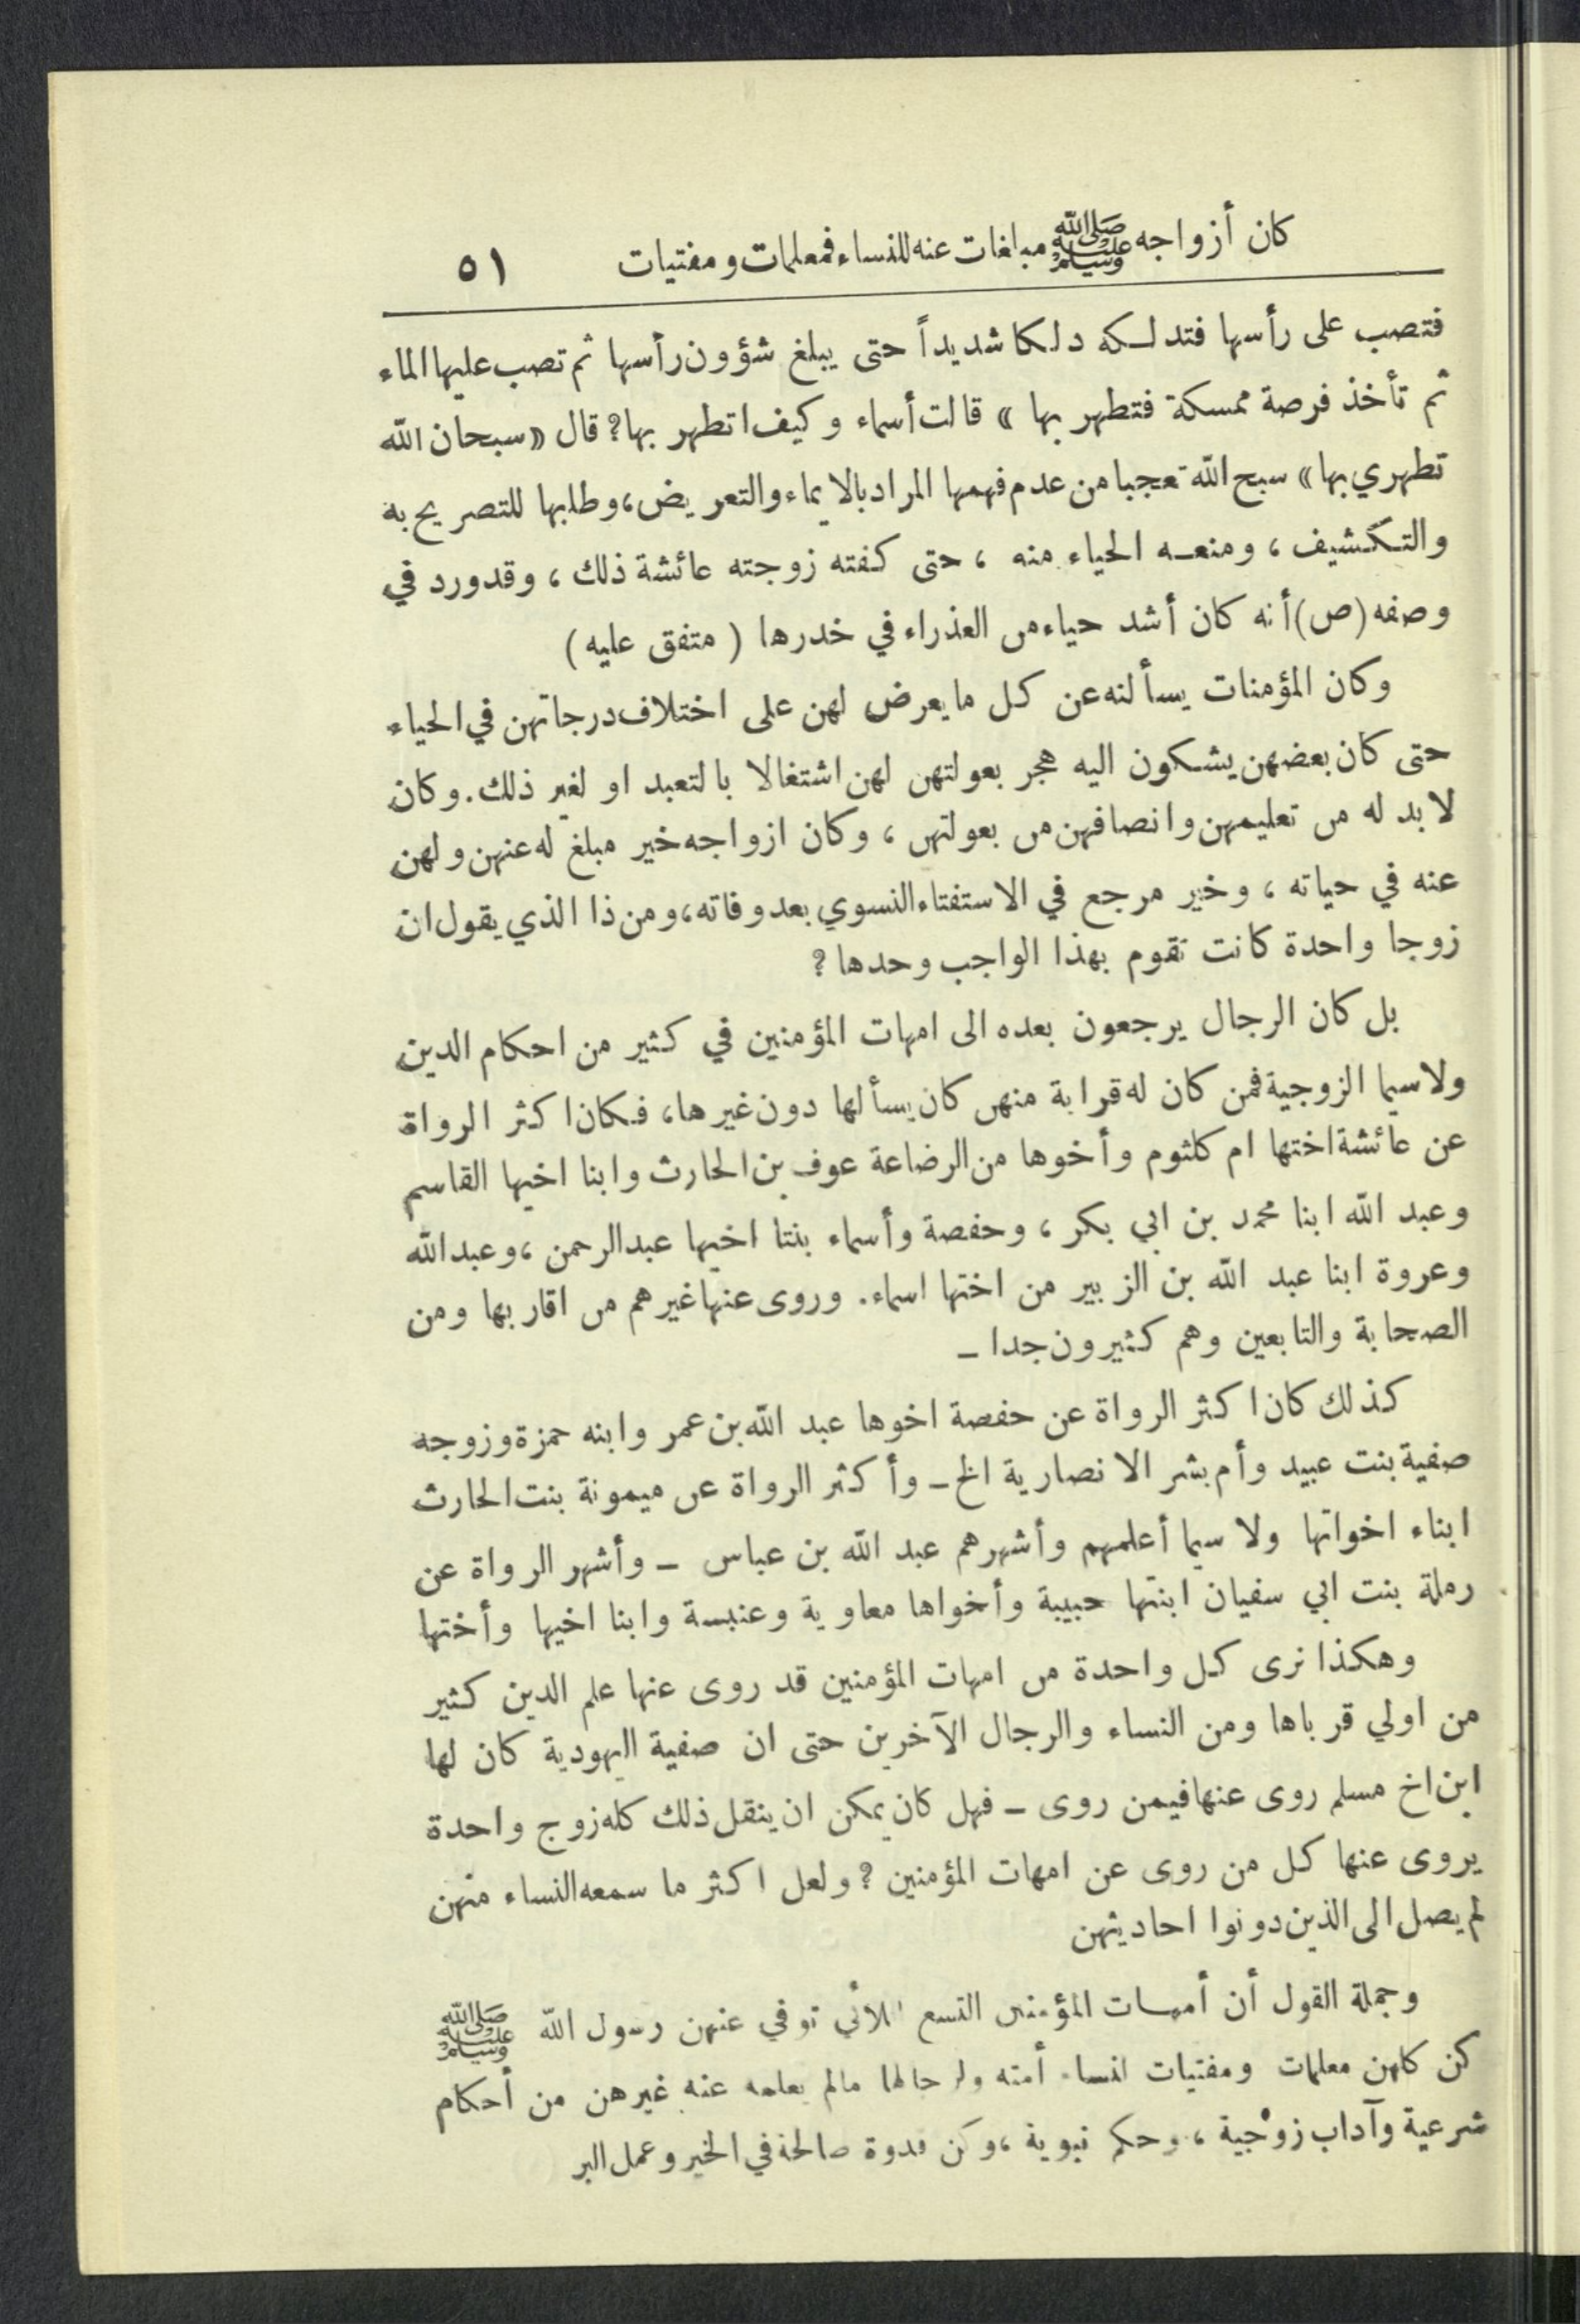 كان أزواجه ﷺ مبلغات عنه للنساء فمعلمات ومفتيات ٥١
فتصب على رأسها فتدلكه دلكا شديداً حتى يبلغ شؤون رأسها ثم تصب عليها الماء
ثم تأخذ فرصة ممسكة فتطهر بها » قالت أسماء وكيف اتطهر بها؟ قال « سبحان الله
تطهري بها » سبح الله تعجبا من عدم فهمها المراد بالايماء والتعريض، وطلبها للتصريح به
والتكشيف ، ومنعه الحياء منه ، حتى كفته زوجته عائشة ذلك ، وقد ورد في
وصفه (ص) أنه كان أشد حياء من العذراء في خدرها ( متفق عليه )
وكان المؤمنات يسألنه عن كل ما يعرض لهن على اختلاف درجاتهن في الحياء
حتى كان بعضهن يشكون اليه هجر بعولتهن لهن اشتغالا بالتعبد او لغير ذلك. وكان
لا بد له من تعليمهن وانصافهن من بعولتهن ، وكان ازواجه خير مبلغ له عنهن ولهن
عنه في حياته ، وخير مرجع في الاستفتاء النسوي بعد وفاته، ومن ذا الذي يقول ان
زوجا واحدة كانت تقوم بهذا الواجب وحدها ؟
بل كان الرجال يرجعون بعده الى امهات المؤمنين في كثير من احكام الدين
ولا سيما الزوجية فمن كان له قرابة منهن كان يسألها دون غيرها، فكان اكثر الرواة
عن عائشة اختها ام كلثوم وأخوها من الرضاعة عوف بن الحارث وابنا اخيها القاسم
وعبد الله ابنا محمد بن ابي بكر ، وحفصة وأسماء بنتا اخيها عبدالرحمن ، وعبدالله
وعروة ابنا عبد الله بن الزبير من اختها اسماء. وروى عنها غيرهم من اقاربها ومن
الصحابة والتابعين وهم كثيرون جدا ـ
كذلك كان اكثر الرواة عن حفصة اخوها عبد الله بن عمر وابنه حمزة وزوجه
صفية بنت عبيد وأم بشر الانصارية الخ ـ وأكثر الرواة عن ميمونة بنت الحارث
ابناء اخواتها ولا سيما أعلمهم وأشهرهم عبد الله بن عباس ـ وأشهر الرواة عن
رملة بنت ابي سفيان ابنتها حبيبة وأخواها معاوية وعنبسة وابنا اخيها وأختها
وهكذا نرى كل واحدة من امهات المؤمنين قد روى عنها علم الدين كثير
من اولي قرباها ومن النساء والرجال الآخرين حتى ان صفية اليهودية كان لها
ابن اخ مسلم روى عنها فيمن روى ـ فهل كان يمكن ان ينقل ذلك كله زوج واحدة
يروى عنها كل من روى عن امهات المؤمنين ؟ ولعل اكثر ما سمعه النساء منهن
لم يصل الى الذين دونوا احاديثهن
وجملة القول أن أمهات المؤمنين التسع اللائي توفي عنهن رسول الله ﷺ
كن كلهن معلمات ومفتيات لنساء أمته ولرجالها مالم يعلمه عنه غيرهن من أحكام
شرعية وآداب زوجية ، وحكم نبوية ، وكن قدوة صالحة في الخير وعمل البر